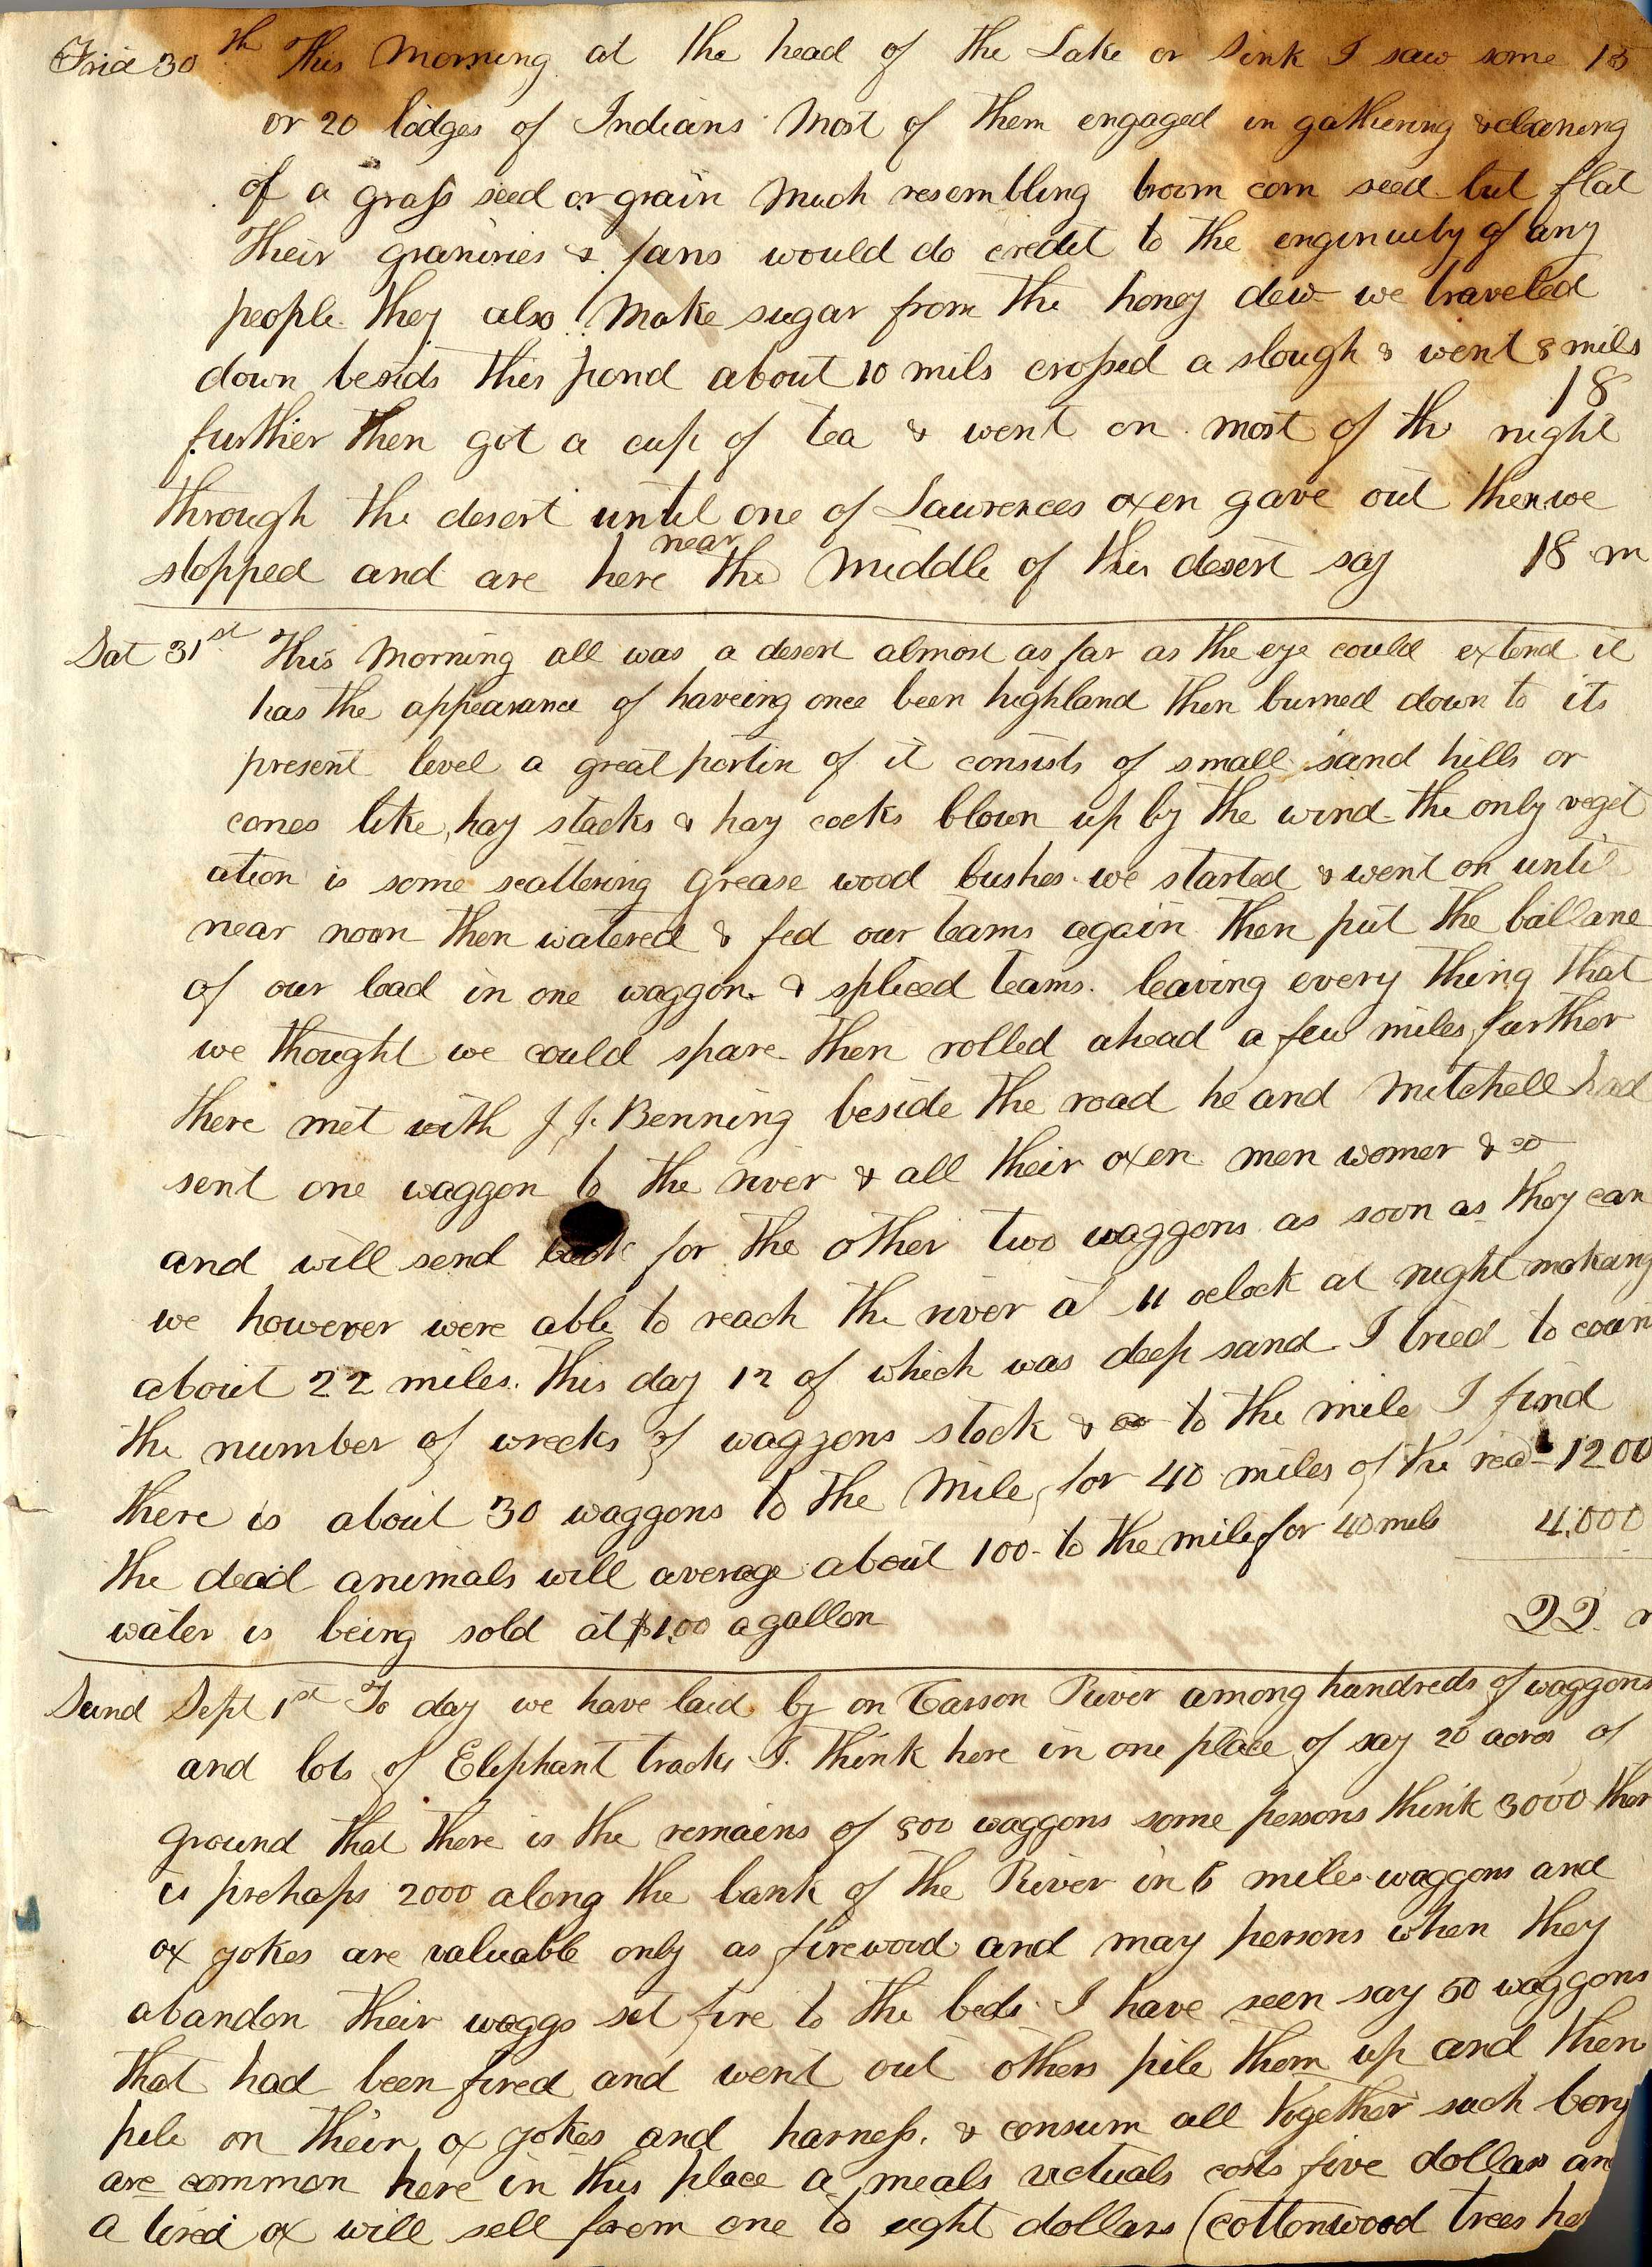 Frid 30th This Morning at the head of the Lake or Sink I saw some 15
or 20 lodges of Indians Most of them engaged in gathering & cleaning
of a grass seed or grain Much resembling broom corn seed but flat
Their graniries & fans would do credit to the enginuity of any
people they also Make sugar from the honey dew we traveled
down besids this pond about 10 mils crossed a slough & went 8 mils
18
further then got a cup of tea & went on most of the night
through the desert until one of Lawrences oxen gave out then we
stopped and are here near the Middle of this desert say 18 m
Sat 31st This Morning all was a desert almost as far as the eye could extend it
has the appearance of haveing once been highland then burned down to its
present level a great portin of it consists of small sand hills or
cones like hay stacks & hay cocks blown up by the wind the only veget
ation is some scattering Grease wood bushes we started & went on until
near noon then watered & fed our teams again then put the ballane
of our load in one waggon & spliced teams. leaving every thing that
we thought we could spare then rolled ahead a few miles further
there met with J. J. Benning beside the road he and Mitchell had
sent one waggon to the river & all their oxen men women & so
and will send back for the other two waggons as soon as they can
we however were able to reach the river at 11 oclock at night makang
about 22 miles. this day 12 of which was deep sand. I tried to coun
the number of wrecks of waggons stock & to the mile I find
there is about 30 waggons to the Mile, for 40 miles of the road 1200
the dead animals will average about 100 to the mile for 40 mils 4.000
water is being sold at $1.00 a gallon 22. m
Sund Sept 1st To day we have laid by on Carson River among hundreds of waggons
and lots of Elephant tracks I. think here in one place of say 20 acres of
ground that there is the remains of 800 waggons some persons think 3000 ther
is prehaps 2000 along the bank of the River in 6 miles waggons and
ox yokes are valuable only as firewood and may persons when they
abandon their waggs set fire to the beds. I have seen say 50 waggons
that had been fired and went out others pile them up and then
pile on their ox yokes and harness. & consum all together such
are common here in this place a meals victuals costs five dollars an
a tired ox will sell from one to eight dollars (cottonwood trees he